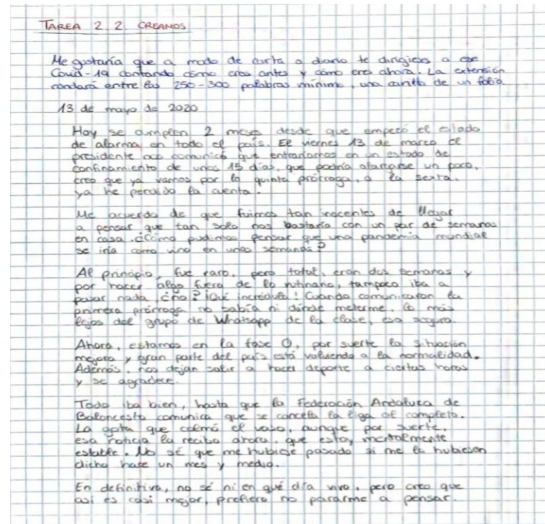 TAREA 2.2. CREANOS
Me gustaría que a modo de carta o diario te dirigieses a ese
Covid-19 contando cómo eras antes y cómo eres ahora. La extensión
rondará entre las 250-300 palabras mínimo, una carilla de un folio.
13 de mayo de 2020
Hoy se cumplen 2 meses desde que empezó el estado
de alarma en todo el país. El viernes 13 de marzo el
presidente nos comunicó que entraríamos en un estado de
confinamiento de unos 15 días, que podría alargarse un poco,
creo que ya vamos por la quinta prórroga, o la sexta.
ya he perdido la cuenta.
Me acuerdo de que fuimos tan inocentes de llegar
a pensar que tan solo nos bastaría con un par de semanas
en casa. ¿Cómo pudimos pensar que una pandemia mundial
se iría como vino en unas semanas?
Al principio, fue raro, pero total, eran dos semanas y
por hacer algo fuera de lo rutinario, tampoco iba a
pasar nada, ¿no? ¡Qué incrédula! Cuando comunicaron la
primera prórroga no sabía ni dónde meterme, lo más
lejos del grupo de Whatsapp de la clase, eso seguro.
Ahora, estamos en la fase 0, por suerte la situación
mejora y gran parte del país está volviendo a la normalidad.
Además, nos dejan salir a hacer deporte a ciertas horas
y se agradece.
Todo iba bien, hasta que la Federación Andaluza de
Baloncesto comunica que se cancela la liga al completo.
La gota que colmó el vaso, aunque por suerte,
esa noticia la recibo ahora, que estoy mentalmente
estable. No sé que me hubiese pasado si me lo hubiesen
dicho hace un mes y medio.
En definitiva, no sé ni en qué día vivo, pero creo que
así es casi mejor, prefiero no pararme a pensar.